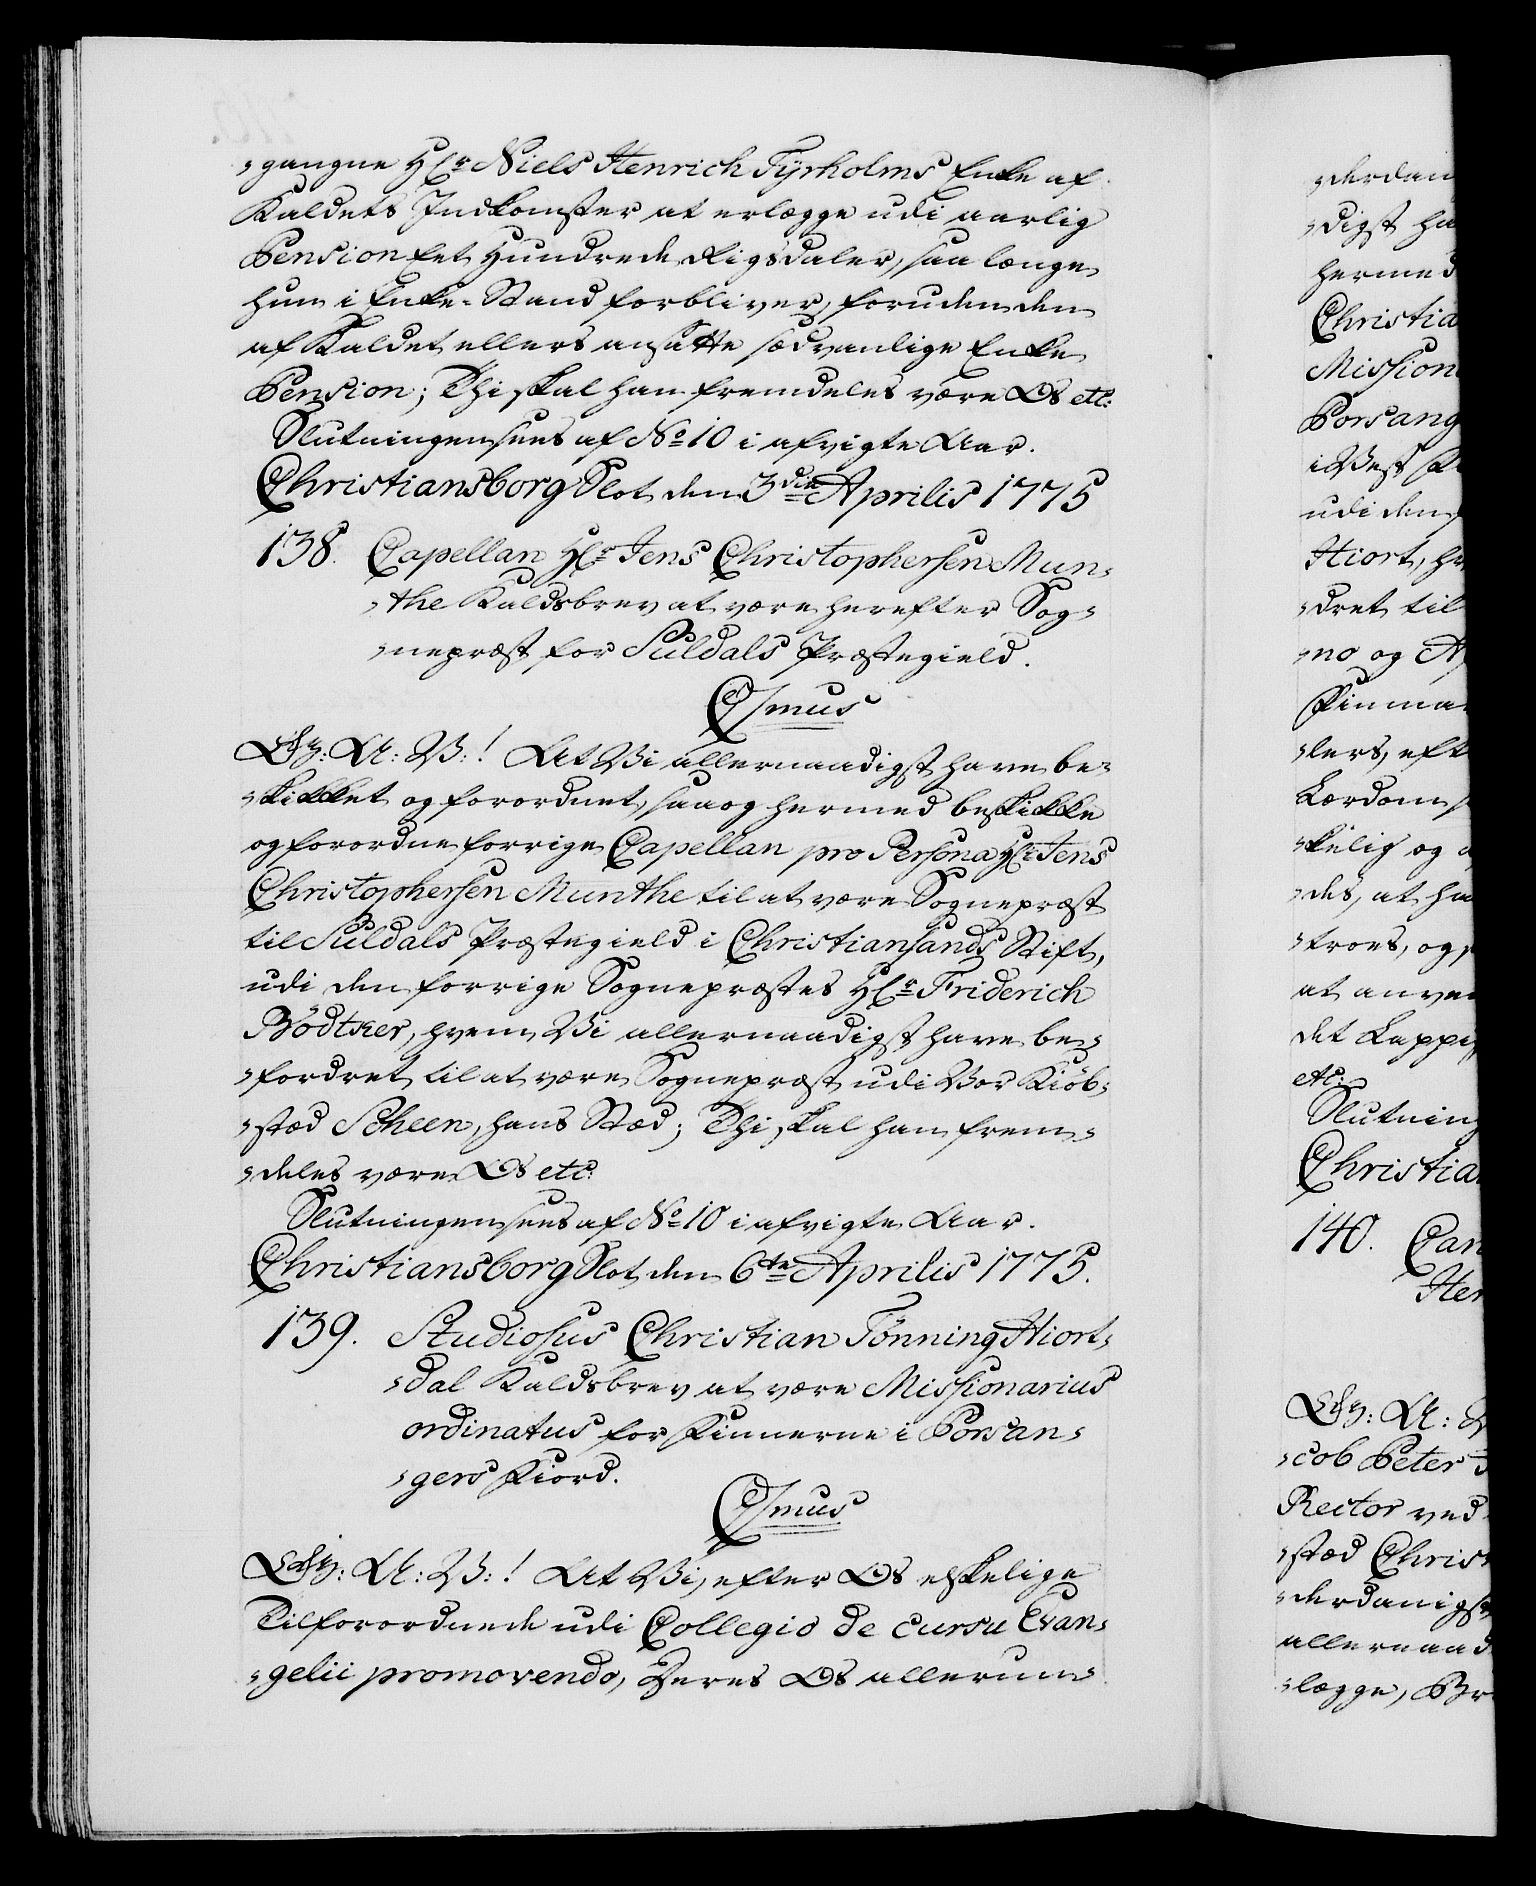 -gangne Hr Niels Henrich Tyrholms Enke af
Kaldets Indkomster at erlægge udi aarlig
Pension Eet Hundrede Rigsdaler, saa længe
hun i Enke-Stand forbliver, foruden den
af Kaldet ellers ansatte sædvanlige Enke
Pension; Thi skal han fremdeles være Os etc:
Slutningen sees af No 10 i afvigte Aar.
Christiansborg Slot den 3die Aprilis 1775
138. Capellan Hr Jens Christophersen Mun-
-the Kaldsbrev at være herefter Sog-
-nepræst for Suldals Præstegield.
C7mus
At Vi allernaadigst have be-
-skikket og forordnet, saa og hermed beskikke
og forordne forrige Capellan pro Persona Hr Jens
Christophersen Munthe til at være Sognepræst
til Suldals Præstegield i Christiansands Stift,
udi den forrige Sognepræstes Hr Friderich
Bödtker, hvem Vi allernaadigst have be-
-fordret til at være Sognepræst udi Vor Kiöb-
-stæd Scheen, hans Stæd; Thi skal han frem-
-deles være Os etc:
Slutningen sees af No 10 i afvigte Aar.
Christiansborg Slot den 6te Aprilis 1775.
139. Studiosus Christian Tønning Hiort-
-dal Kaldsbrev at være Missionarius
ordinatus for Finnerne i Porsan-
-gers Fiord.
C7mus
At Vi, efter Os elskelige
Tilforordnede udi Collegio de cursu Evan-
-gelii promovendo, Deres Os allerun-
-derdan
-digst ha
hermed
Christia
Mission
Porsang
i Vest Fi
udi den
Hiort, h
-dret til
-no og A
Finma
-lers, eft
Lærdom
-kelig og
-des, at ha
-troes, og
at anven
det Lappi
etc:
Slutning
Christian
140. Can
Her
-cob Peter
Rector ved
-stæd Chris
-derdanigst
allernaad
-lægge, Br